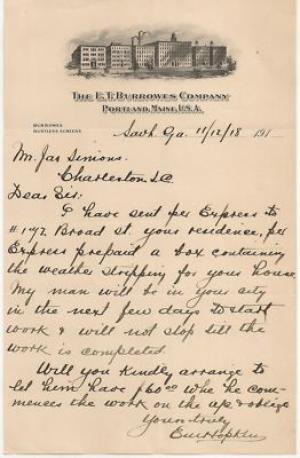 THE E.T. BURROWES COMPANY
PORTLAND, MAINE, U.S.A.
BURROWES
RUSTLESS SCREENS
Savh. Ga. 11/12/18 191
Mr. Jas Simons.
Charleston S.C
Dear Sir:
I have sent per Express to
Broad st. your residence, per
Express prepaid a box containing
the weather stripping for your house
My man will be in your city
in the next few days to start
work & will not stop till the
work is completed.
Will you kindly arrange to
let him have $60.00 whe he com-
mences the work on the up & oblige
Yours truly